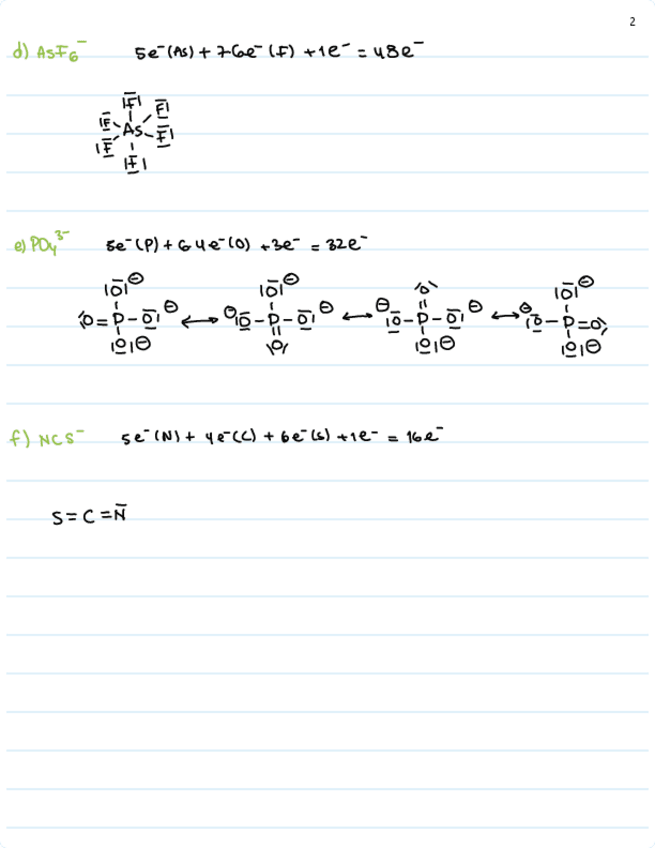 2
d) AsF6⁻ 5e⁻(As) + 7·6e⁻(F) + 1e⁻ = 48e⁻
|F̄| F̄|
|F̄ As F̄|
|F̄ |F̄|
e) PO4³⁻ 5e⁻(P) + 6·4e⁻(O) + 3e⁻ = 32e⁻
|Ō|⊖ |Ō|⊖ \O/ |Ō|⊖
\O=P-Ō|⊖ ↔ ⊖|Ō-P-Ō|⊖ ↔ ⊖|Ō-P-Ō|⊖ ↔ ⊖|Ō-P=O/
|O|⊖ \O/ |O|⊖ |O|⊖
f) NCS⁻ 5e⁻(N) + 4e⁻(C) + 6e⁻(S) + 1e⁻ = 16e⁻
S=C=N̄